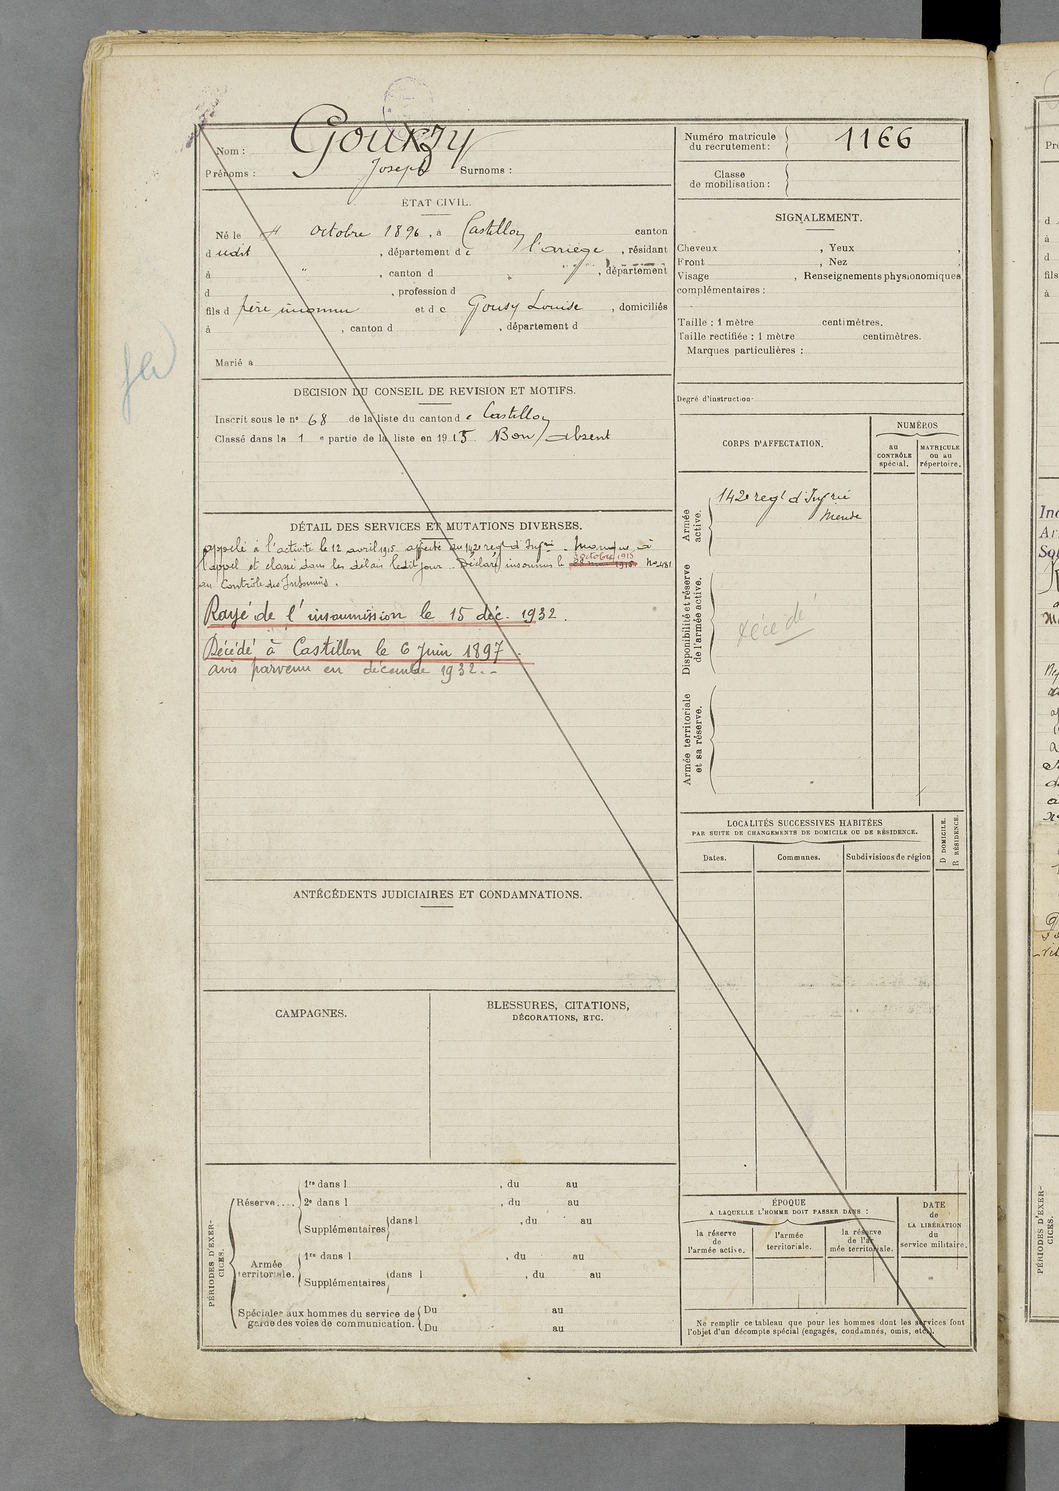 Nom : Gouzy
Prénoms : Joseph Surnoms :
ÉTAT CIVIL.
Né le 4 octobre 1896, à Castillon canton
dudit, département de l'ariège, résidant
à " , canton d , département
d , profession d
fils d père inconnu et de Gousy Louise, domiciliés
à , canton d , département d
Marié à
DÉCISION DU CONSEIL DE REVISION ET MOTIFS.
Inscrit sous le n° 68 de la liste du canton de Castillon
Classé dans la 1e partie de la liste en 1915 Bon absent
DÉTAIL DES SERVICES ET MUTATIONS DIVERSES.
appelé à l'activité le 12 avril 1915 affecté au 142e regt d'Infrie. Manque à
octobre 1915
l'appel et classé dans les délais ledit jour. Déclaré insoumis le 1915 No 481
au Contrôle des Insoumis.
Rayé de l'insoumission le 15 déc. 1932.
Décédé à Castillon le 6 Juin 1897.
avis parvenu en décembre 1932.-
ANTÉCÉDENTS JUDICIAIRES ET CONDAMNATIONS.
CAMPAGNES.
BLESSURES, CITATIONS,
DÉCORATIONS, ETC.
PÉRIODES D'EXERCICES.
Réserve....
1re dans l , du au
2e dans l , du au
Supplémentaires dans l , du au
Armée territoriale.
1re dans l , du au
Supplémentaires dans l , du au
Spéciales aux hommes du service de
garde des voies de communication.
Du au
Du au
Numéro matricule
du recrutement : 1166
Classe
de mobilisation :
SIGNALEMENT.
Cheveux , Yeux ,
Front , Nez ,
Visage , Renseignements physionomiques
complémentaires :
Taille : 1 mètre centimètres.
Taille rectifiée : 1 mètre centimètres.
Marques particulières :
Degré d'instruction.
CORPS D'AFFECTATION.
NUMÉROS
au
CONTRÔLE
spécial.
MATRICULE
ou au
répertoire.
Armée
active.
142e regt d'Infrie
Mende
Disponibilité et réserve
de l'armée active.
décédé
Armée territoriale
et sa réserve.
LOCALITÉS SUCCESSIVES HABITÉES
PAR SUITE DE CHANGEMENTS DE DOMICILE OU DE RÉSIDENCE.
Dates.
Communes.
Subdivisions de région
D DOMICILE.
R RÉSIDENCE.
ÉPOQUE
A LAQUELLE L'HOMME DOIT PASSER DANS :
la réserve
de
l'armée active.
l'armée
territoriale.
la réserve
de l'ar
mée territoriale.
DATE
de
LA LIBÉRATION
du
service militaire.
Ne remplir ce tableau que pour les hommes dont les services font
l'objet d'un décompte spécial (engagés, condamnés, omis, etc.).